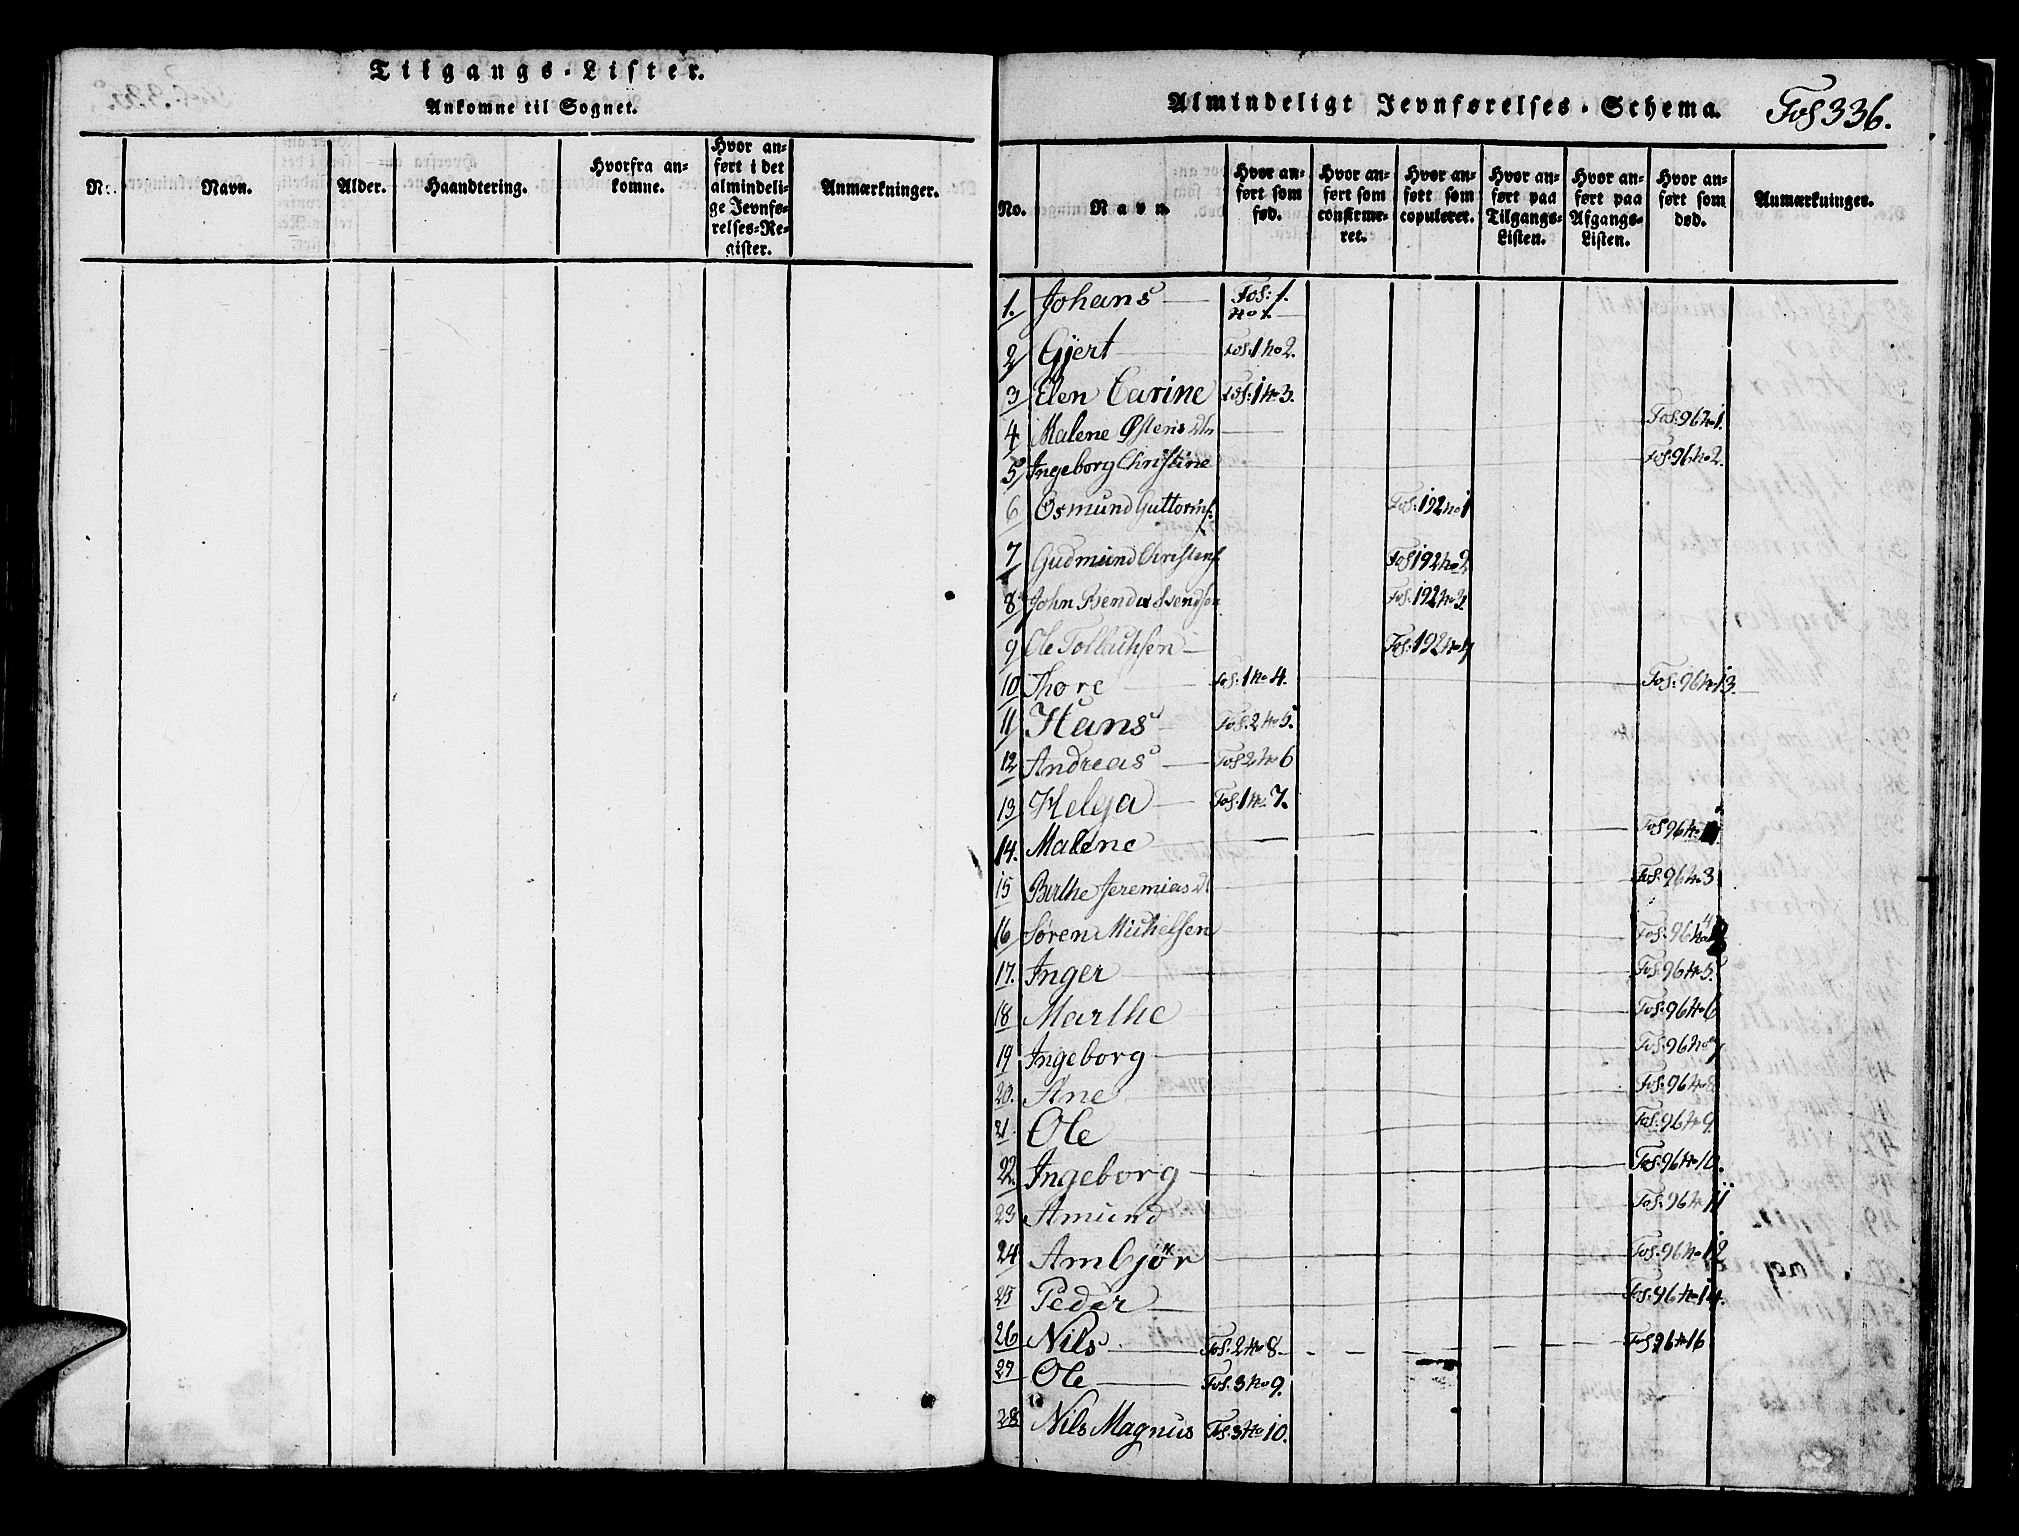 Tilgangs-Lister.
Ankomne til Sognet.
No.
Navn.
Alder.
Haandtering.
Hvorfra ankomne.
Hvor anført i det almindelige Jevnførelses-Register.
Anmærkninger.
Almindeligt Jevnførelses-Schema.
Fol 336.
No.
Navn
Hvor anført som fød.
Hvor anført som confirmeret.
Hvor anført som copuleret.
Hvor anført paa Tilgangs-Listen.
Hvor anført paa Afgangs-Listen.
Hvor anført som død.
Anmærkninger.
1. Johans Fol: 1. No 1.
2 Gjert Fol: 1 No 2.
3 Elen Carine Fol: 1 No 3.
4 Malene Østens dtr Fol: 96 No 1.
5 Ingeborg Christine Fol: 96 No 2.
6 Osmund Guttormf. Fol: 192 No 1
7 Gudmund Christenf. Fol 192 No 2
8 John Svendsen Fol: 192 No 3
9 Ole Tollachsen Fol: 192 No 4
10 Thore Fol: 1 No 4. Fol: 96 No 13.
11 Hans Fol: 2 No 5.
12 Andreas Fol 2 No 6
13 Helga Fol: 1 No 7.
14. Malene Fol 96 No
15 Birthe Jeremias dt Fol: 96 No 3
16 Søren Michelsen Fol: 96 No 4
17. Inger Fol: 96 No 5.
18 Marthe Fol: 96 No 6
19 Ingeborg Fol: 96 No 7
20. Ane Fol: 96 No 8
21 Ole Fol: 96 No 9.
22. Ingeborg Fol: 96 No 10.
23 Amund Fol: 96 No 11
24 Ambjör Fol: 96 No 12
25 Peder Fol: 96 No 14.
26 Nils Fol: 2 No 8. Fol 96 No 16
27 Ole Fol: 3 No 9.
28 Nils Magnus Fol: 3 No 10.